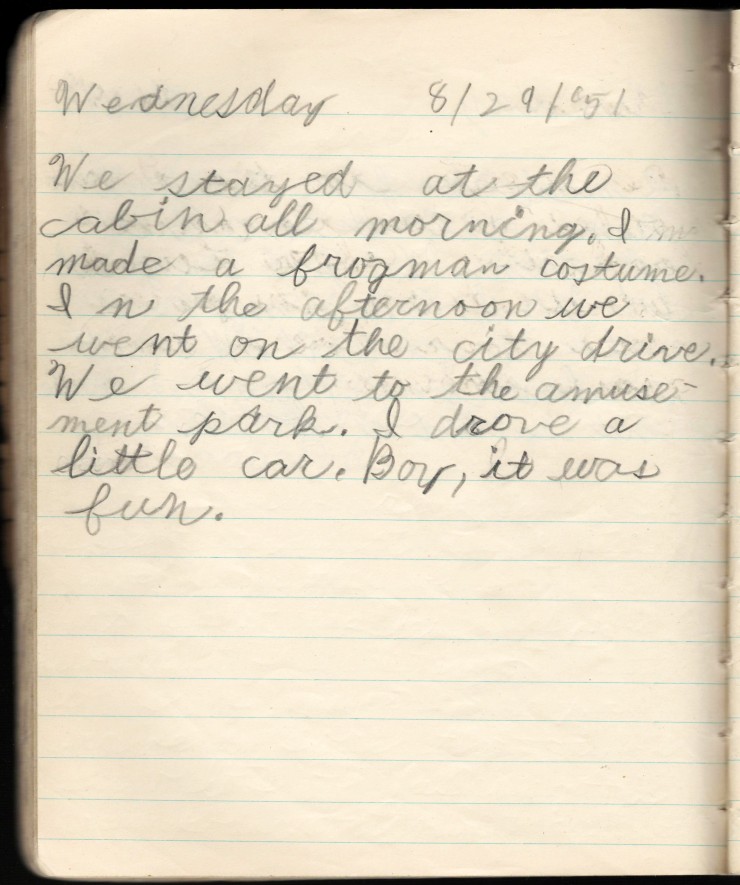 Wednesday 8/29/'51
We stayed at the
cabin all morning. I
made a frogman costume.
In the afternoon we
went on the city drive.
We went to the amuse-
ment park. I drove a
little car. Boy, it was
fun.